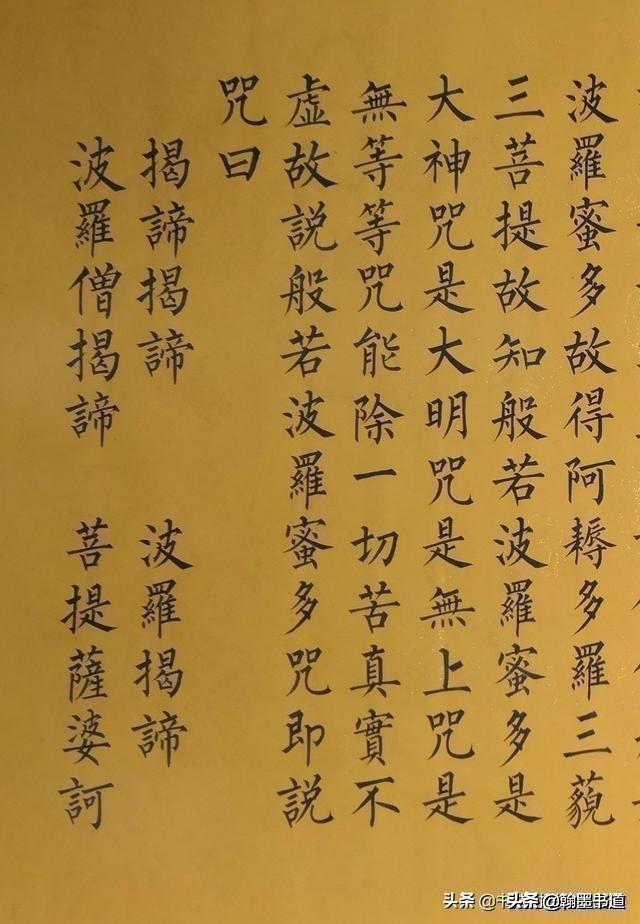 波羅蜜多故得阿耨多羅三藐
三菩提故知般若波羅蜜多是
大神咒是大明咒是無上咒是
無等等咒能除一切苦真實不
虛故説般若波羅蜜多咒即説
咒曰
揭諦揭諦 波羅揭諦
波羅僧揭諦 菩提薩婆訶
头条 @翰墨书道